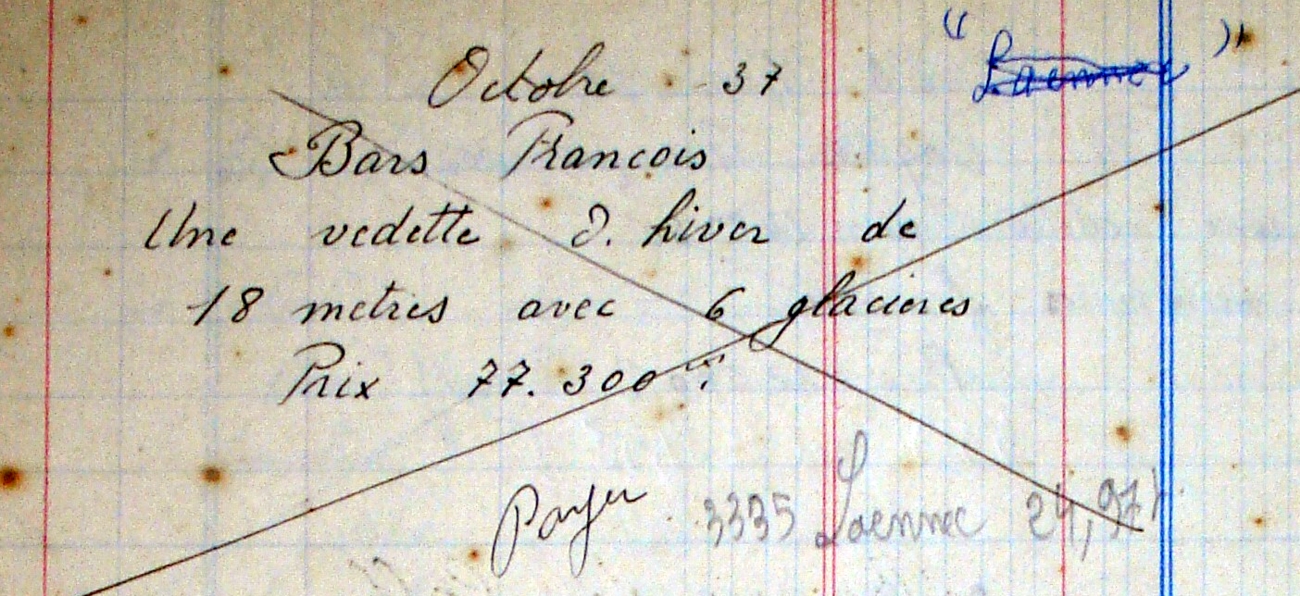 Octobre - 37 " Laennec "
Bars Francois
Une vedette d. hiver de
18 metres avec 6 glacieres
Prix 77.300
Payer 3335 Laennec 24,97